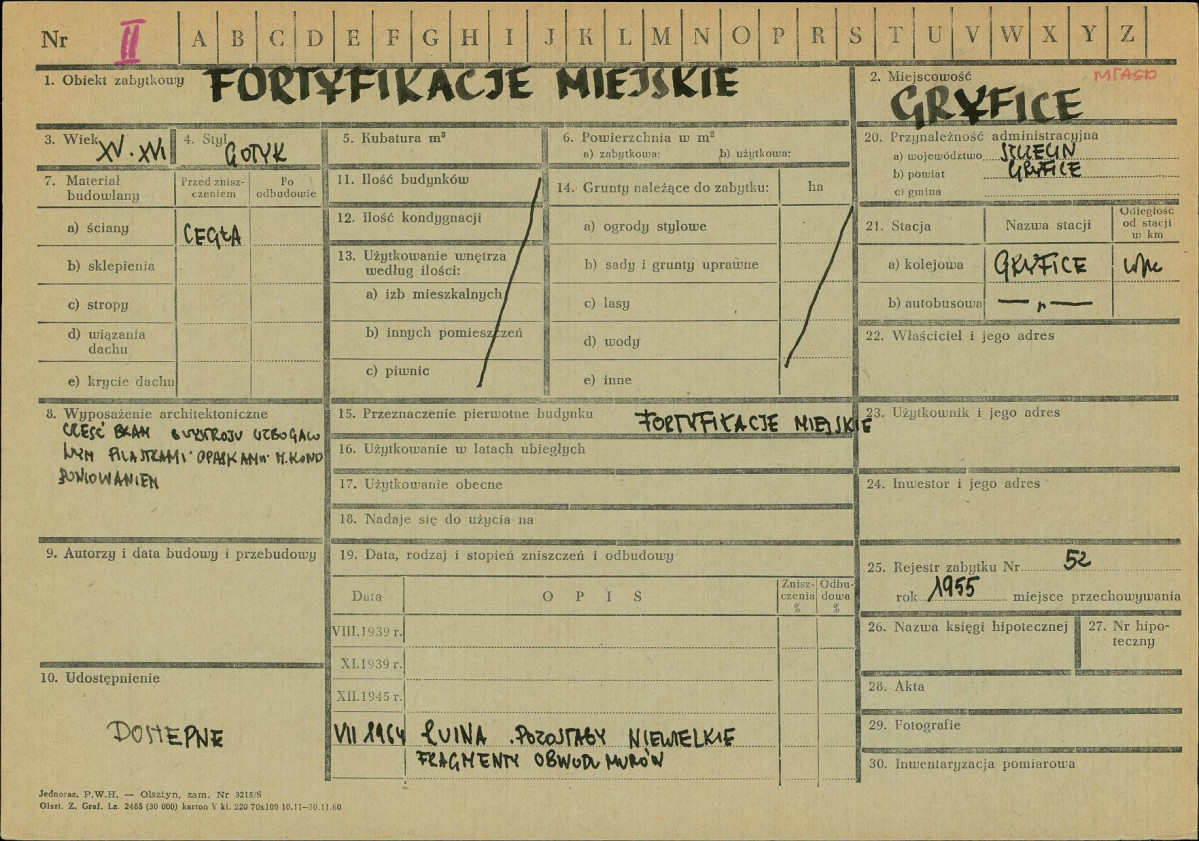 Nr II A B C D E F G H I J K L M N O P R S T U V W X Y Z
1. Obiekt zabytkowy FORTYFIKACJE MIEJSKIE
2. Miejscowość MIASTO
GRYFICE
3. Wiek XV-XVI
4. Styl GOTYK
5. Kubatura m³
6. Powierzchnia w m²
a) zabytkowa: b) użytkowa:
20. Przynależność administracyjna
a) województwo SZCZECIN
b) powiat GRYFICE
c) gmina
7. Materiał budowlany
Przed znisz-
czeniem
Po
odbudowie
a) ściany CEGŁA
b) sklepienia
c) stropy
d) wiązania
dachu
e) krycie dachu
11. Ilość budynków
12. Ilość kondygnacji
13. Użytkowanie wnętrza
według ilości:
a) izb mieszkalnych
b) innych pomieszczeń
c) piwnic
14. Grunty należące do zabytku: ha
a) ogrody stylowe
b) sady i grunty uprawne
c) lasy
d) wody
e) inne
21. Stacja Nazwa stacji
Odległość
od stacji
w km
a) kolejowa GRYFICE
b) autobusowa — „ —
22. Właściciel i jego adres
8. Wyposażenie architektoniczne
CZĘŚĆ BRAM O WYSTROJU WZBOGACO
NYM PILASTRAMI OPASKAMI
15. Przeznaczenie pierwotne budynku FORTYFIKACJE MIEJSKIE
16. Użytkowanie w latach ubiegłych
17. Użytkowanie obecne
18. Nadaje się do użycia na
23. Użytkownik i jego adres
24. Inwestor i jego adres
9. Autorzy i data budowy i przebudowy
19. Data, rodzaj i stopień zniszczeń i odbudowy
Data OPIS
Znisz-
czenia
%
Odbu-
dowa
%
VIII.1939 r.
XI.1939 r.
XII.1945 r.
VII 1964 RUINA. POZOSTAŁY NIEWIELKIE
FRAGMENTY OBWODU MURÓW
25. Rejestr zabytku Nr 52
rok 1955 miejsce przechowywania
26. Nazwa księgi hipotecznej
27. Nr hipo-
teczny
10. Udostępnienie
DOSTĘPNE
28. Akta
29. Fotografie
30. Inwentaryzacja pomiarowa
Jednoraz. P.W.H. — Olsztyn, zam. Nr 3215/S
Olszt. Z. Graf. Lz. 2485 (30 000) karton V kl. 220 70x100 10.11—30.11.60